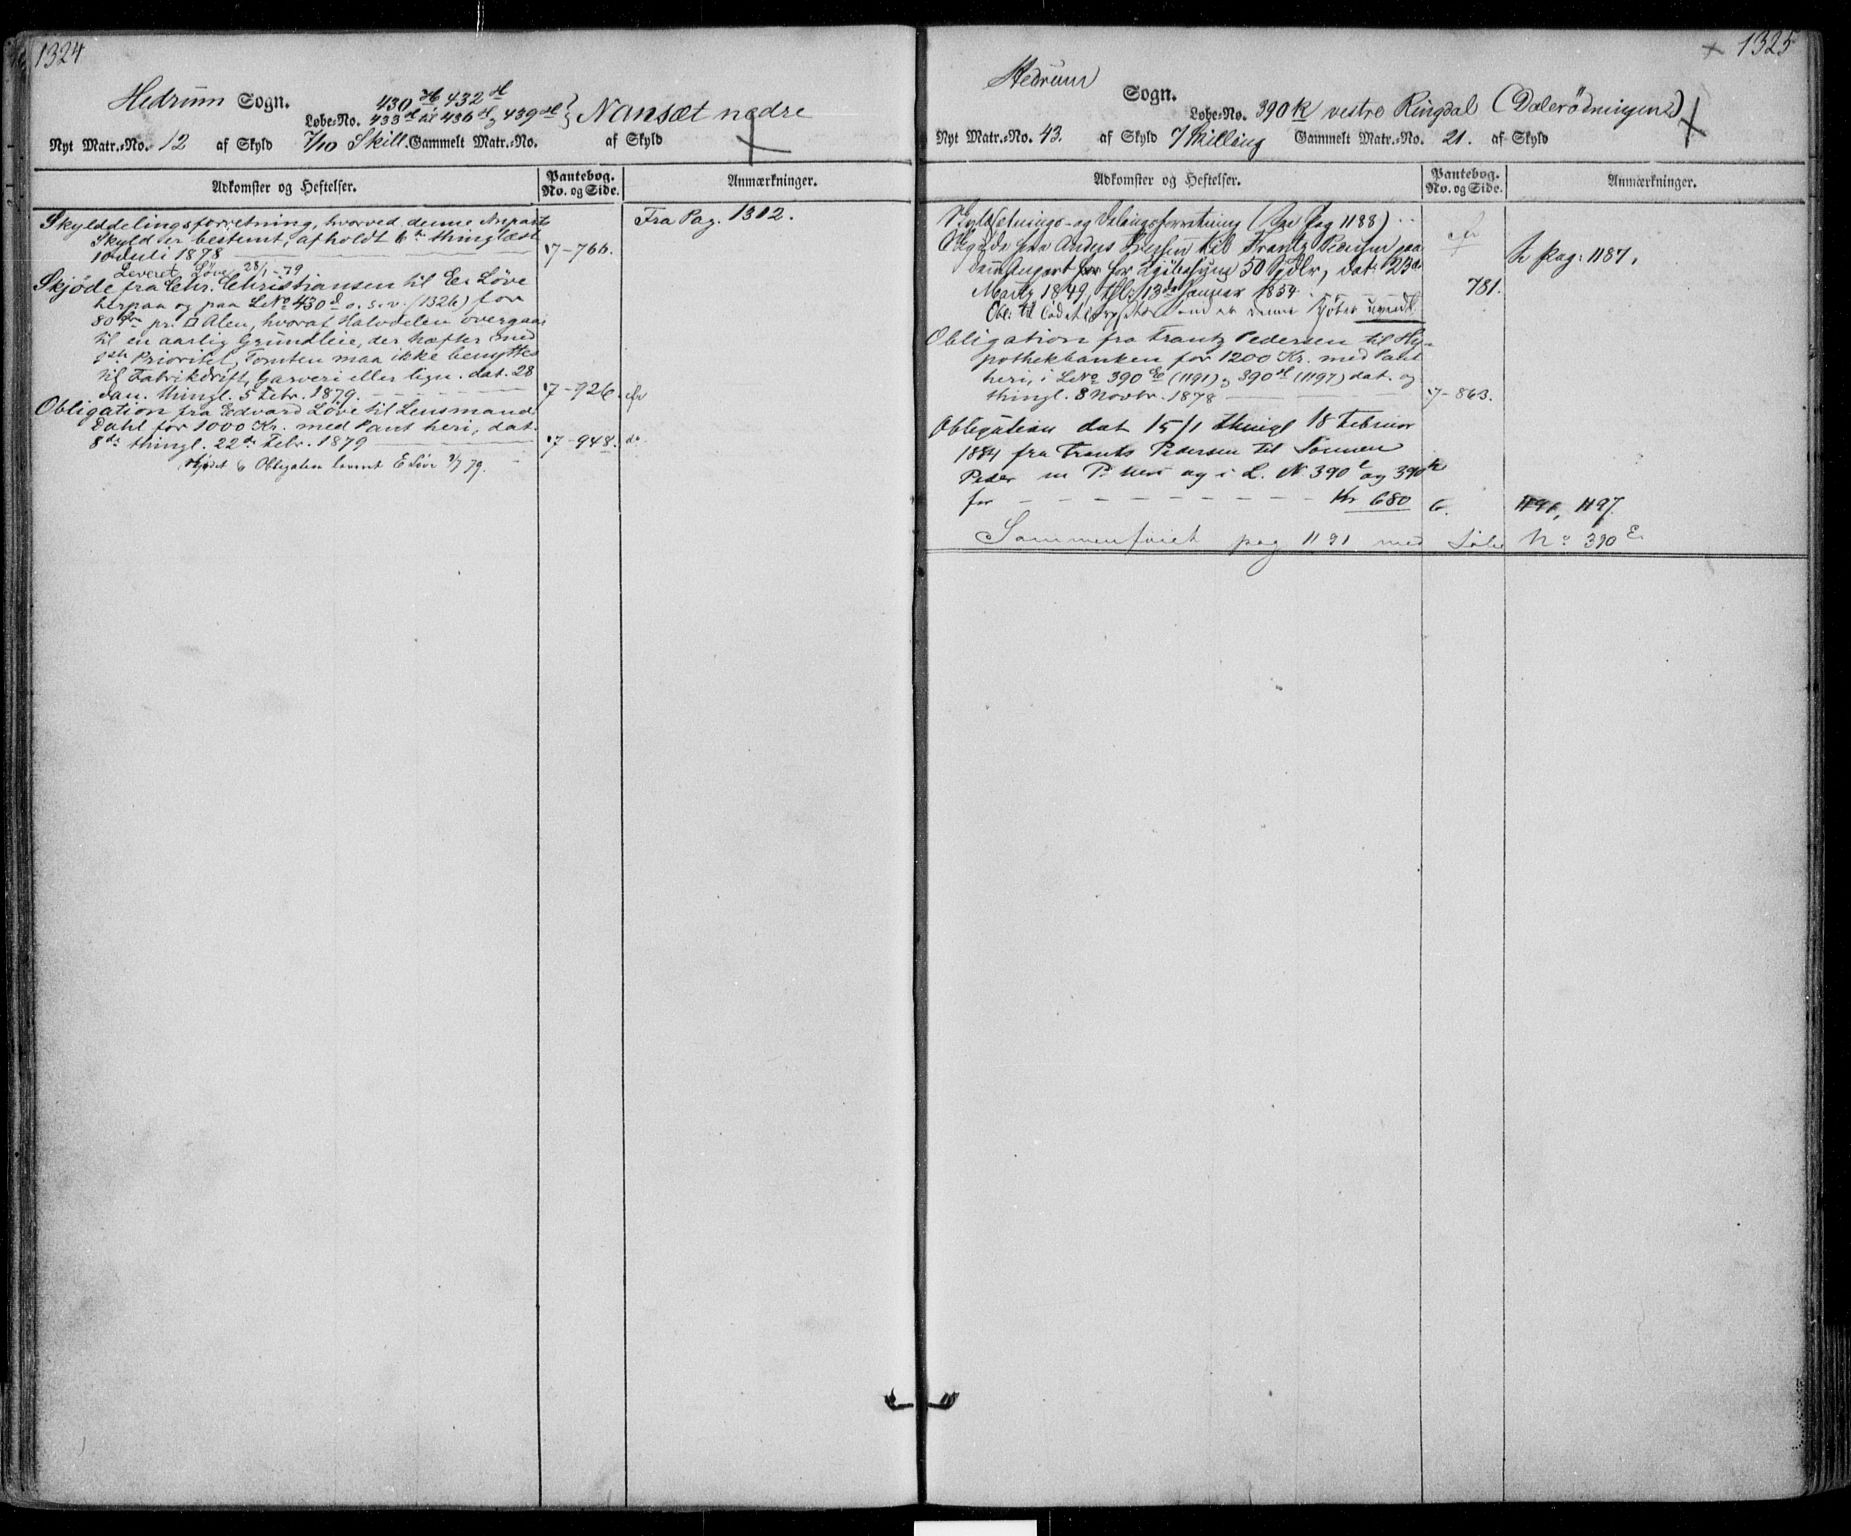 1324
Hedrum Sogn.
430 H, 432 H
Løbe-No. 433 H til 436 H, 439 H } Nansæt nedre
Nyt Matr.-No. 12 af Skyld 7/10 Skill. Gammelt Matr.-No. af Skyld
Adkomster og Heftelser.
Pantebog.
No. og Side.
Anmærkninger.
Skylddelingsforretning, hvorved denne Anparts Fra Pag. 1312.
Skyld er bestemt, afholdt 6te thinglæst
10 Juli 1878 7-766.
Leveret Løve 28/1-79
Skjøde fra Chr. Christiansen til E. Løve
herpaa og paa LNo 430 d o. s. v. (1326) for
80 pr. □ Alen, hvoraf Halvdelen overgaar
til en aarlig Grundleie, der hæfter med
1ste Prioritet, Tomten maa ikke benyttes
til Fabrikdrift, Garveri eller lign. dat. 28
Jan. thingl. 5 Febr. 1879. 7-926.
Obligation fra Edvard Løve til Lensmand
Dahl for 1000 Kr. med Pant heri, dat.
8de thingl. 22de Febr. 1879 7-948. do
Skjødet & Obligation leveret E Løve 3/7 79.
1325
Hedrum
Sogn.
Løbe-No. 390 k vestre Ringdal (Dalerødningen)
Nyt Matr.-No. 43. af Skyld 7 Skilling Gammelt Matr.-No. 21. af Skyld
Adkomster og Heftelser.
Pantebog.
No. og Side.
Anmærkninger.
Skyldsetnings- og Delingsforretning (See Pag 1188)
Skjøde fra Anders til Frantz Pedersen paa
denne Anpart for Kjøbesum 50 Spdlr, dat: 23de fr pag: 1187.
Marts 1849, thl: 13de Januar 1854 781.
Obligation fra Frantz Pedersen til Hy-
pothekbanken for 1200 Kr. med Pant
heri, i LNo 390 E (1191) & 390 H (1197) dat. og
thingl. 8 Novbr. 1878 7-863.
Obligation dat 15/1 thingl 18 Februar
1884 fra Frants Pedersen til Sønnen
Peder m P. heri og i L. N 390 E og 390 H
for Kr 680 6. 1191, 1197.
Sammenføiet pag 1191 med Løbe No 390 E.